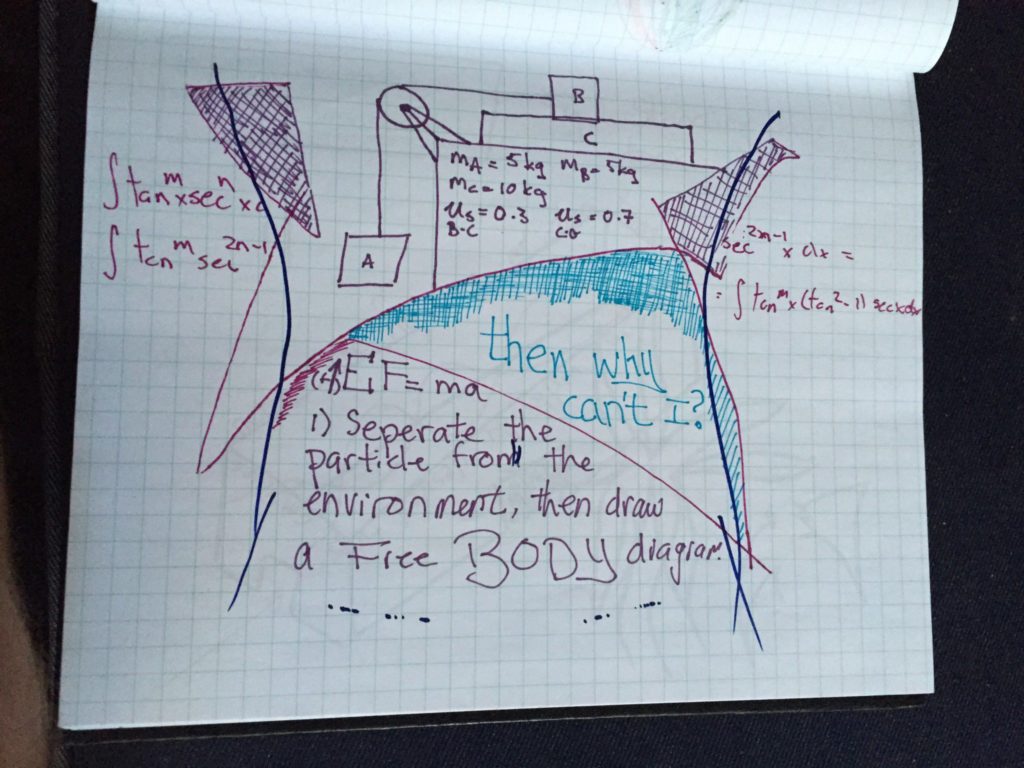 B
C
mA = 5 kg mB = 5 kg
mC = 10 kg
us = 0.3 us = 0.7
B-C C-G
A
∫ tan^m x sec^n x
∫ tan^m sec^2n-1
sec^2m-1 x dx =
= ∫ tan^m x (tan^2 - 1) sec x dx
then why
can't I?
(+↑) Σ F = ma
1) Seperate the
particle from the
environment, then draw
a Free BODY diagram.